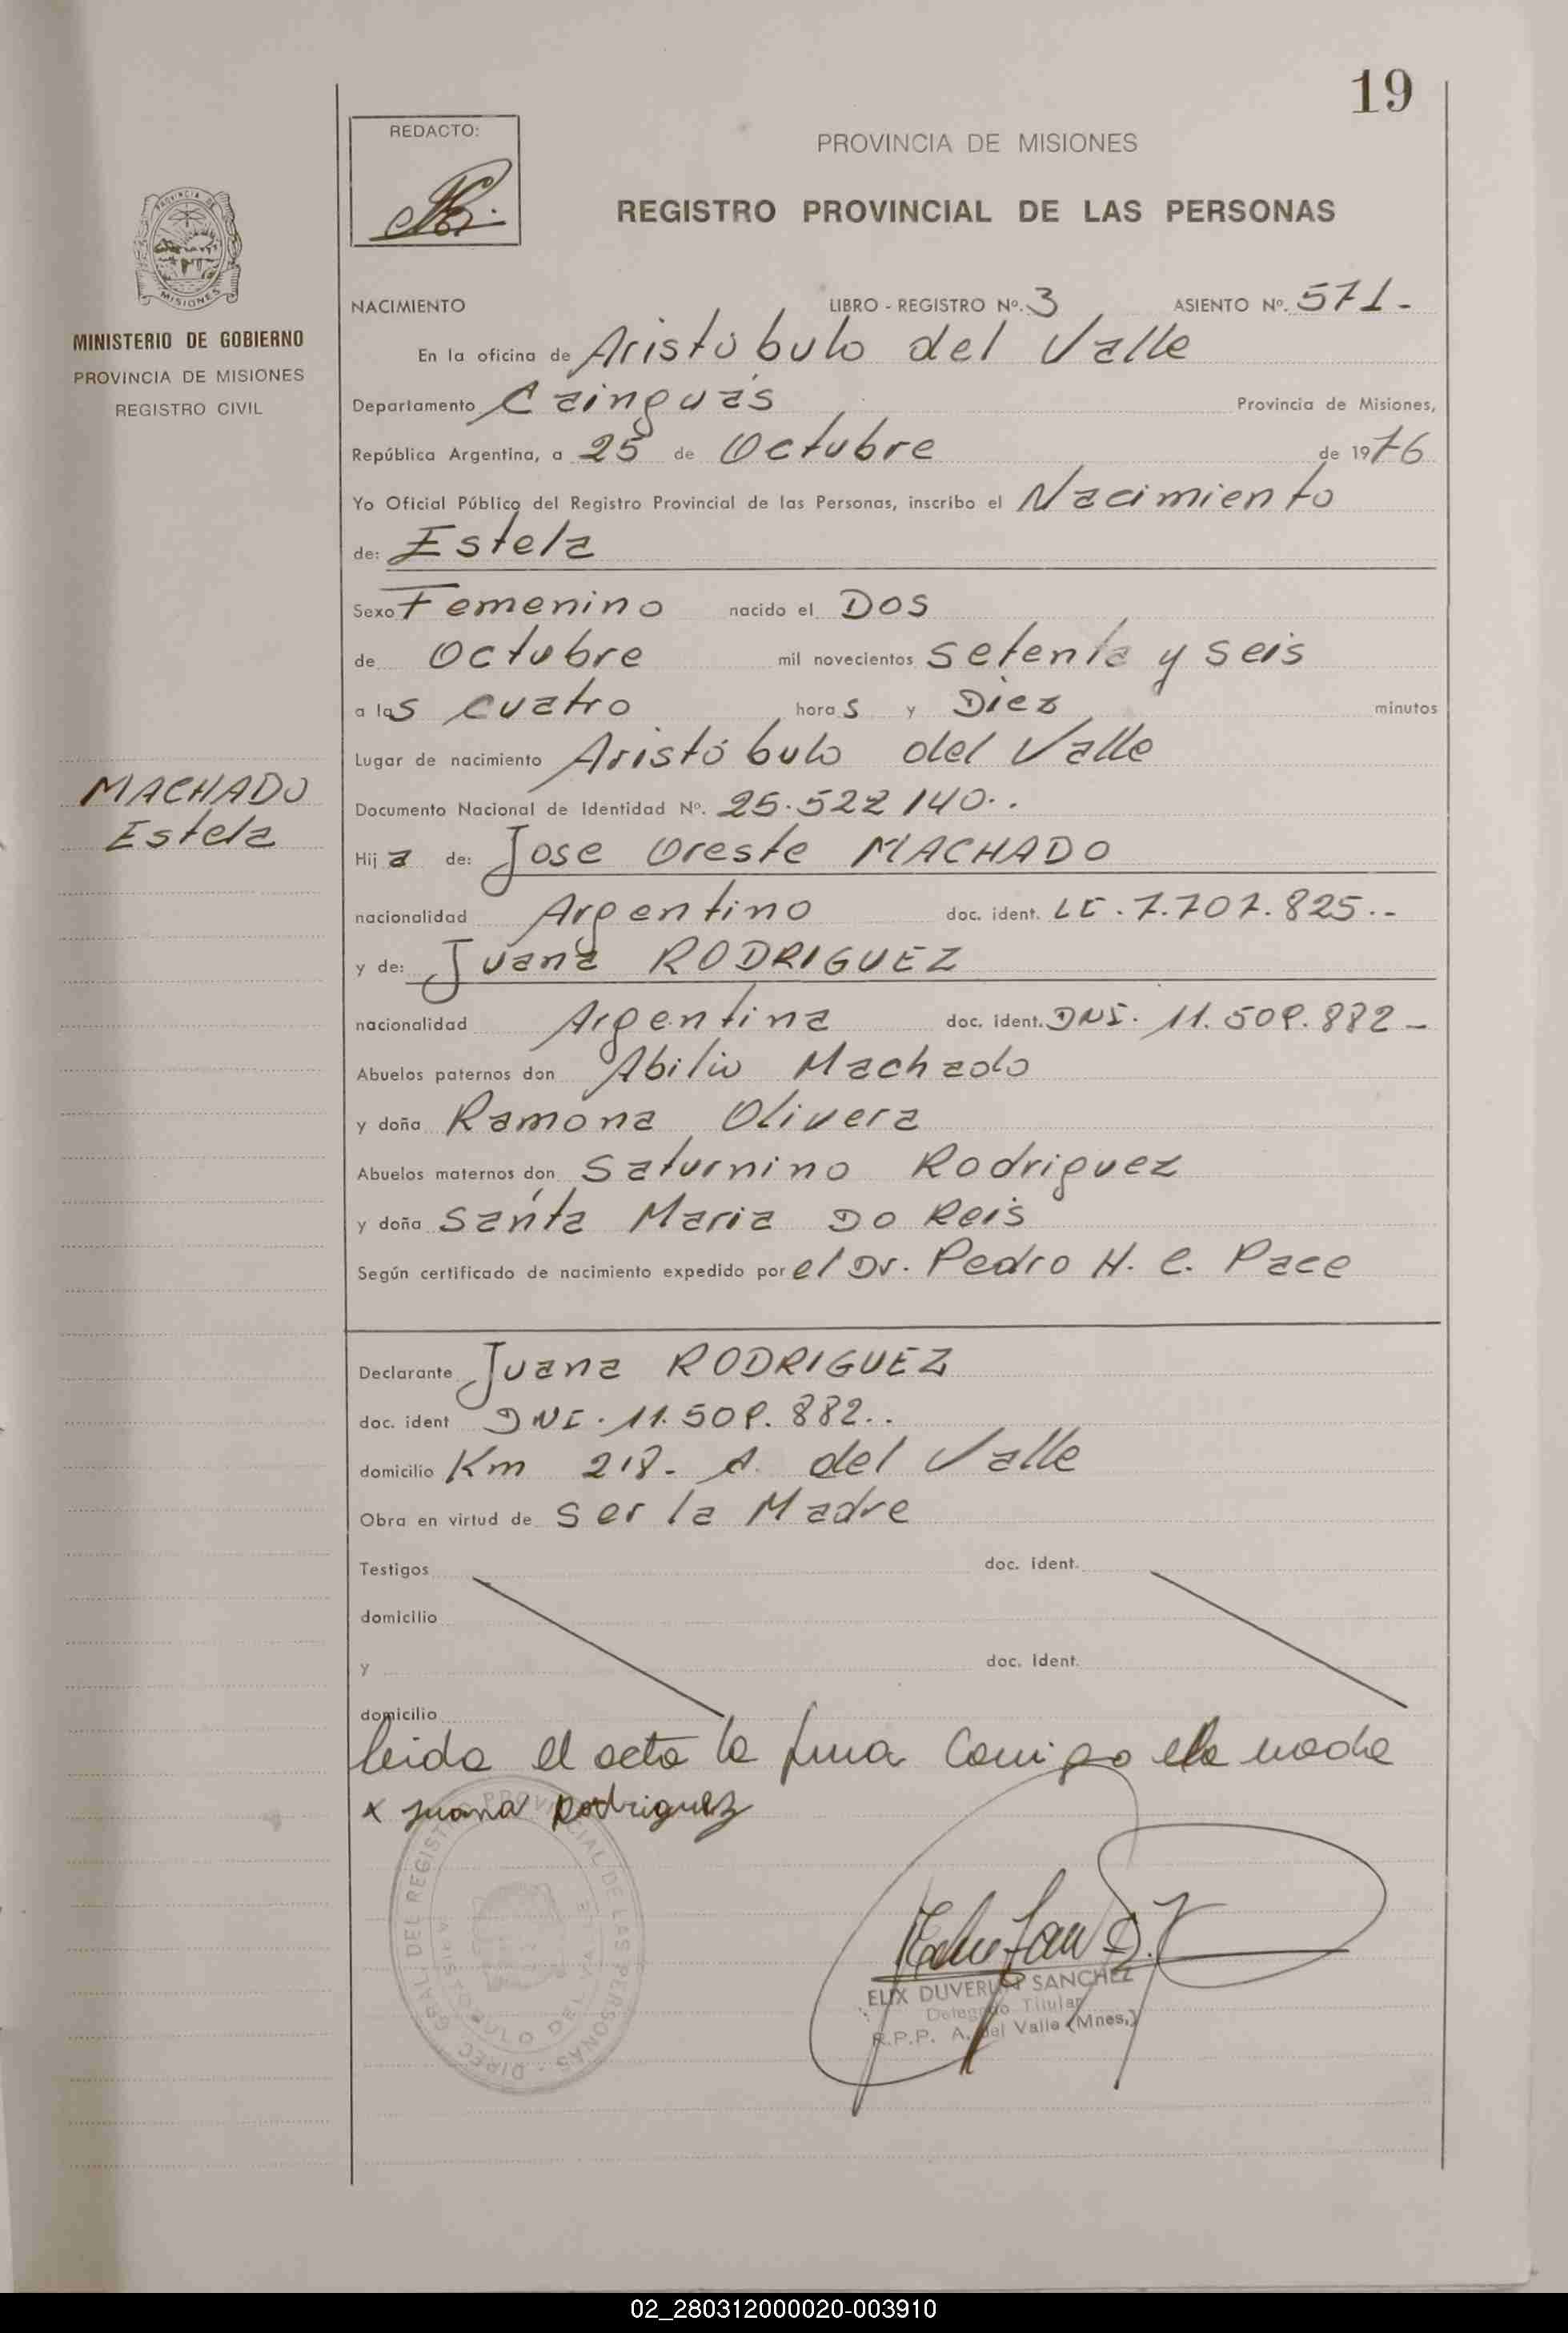 19
REDACTO:
PROVINCIA DE MISIONES
REGISTRO PROVINCIAL DE LAS PERSONAS
MINISTERIO DE GOBIERNO
PROVINCIA DE MISIONES
REGISTRO CIVIL
NACIMIENTO LIBRO - REGISTRO Nº. 3 ASIENTO Nº. 571-
En la oficina de Aristóbulo del Valle
Departamento Cainguás Provincia de Misiones,
República Argentina, a 25 de Octubre de 1976
Yo Oficial Público del Registro Provincial de las Personas, inscribo el Nacimiento
de: Estela
Sexo Femenino nacido el Dos
de Octubre mil novecientos setenta y seis
a las cuatro horas y Diez minutos
Lugar de nacimiento Aristóbulo del Valle
MACHADO
Estela
Documento Nacional de Identidad Nº. 25.522 140..
Hija de: Jose Oreste MACHADO
nacionalidad Argentino doc. ident. LE. 7.707.825.-
y de: Juana RODRIGUEZ
nacionalidad Argentina doc. ident. DNI. 11.509.882-
Abuelos paternos don Abilio Machado
y doña Ramona Olivera
Abuelos maternos don Saturnino Rodriguez
y doña Santa Maria Do Reis
Según certificado de nacimiento expedido por el Dr. Pedro H. C. Pace
Declarante Juana RODRIGUEZ
doc. ident DNI. 11.509.882..
domicilio Km 218- A. del Valle
Obra en virtud de ser la Madre
Testigos doc. ident.
domicilio
y doc. ident.
domicilio
leida el acta la firma conmigo la madre
x juana Rodriguez
DIREC. GRAL. DEL REGISTRO PROVINCIAL DE LAS PERSONAS
ARISTOBULO DEL VALLE
ELIX DUVERLIN SANCHEZ
Delegado Titular
R.P.P. A. del Valle (Mnes.)
02_280312000020-003910